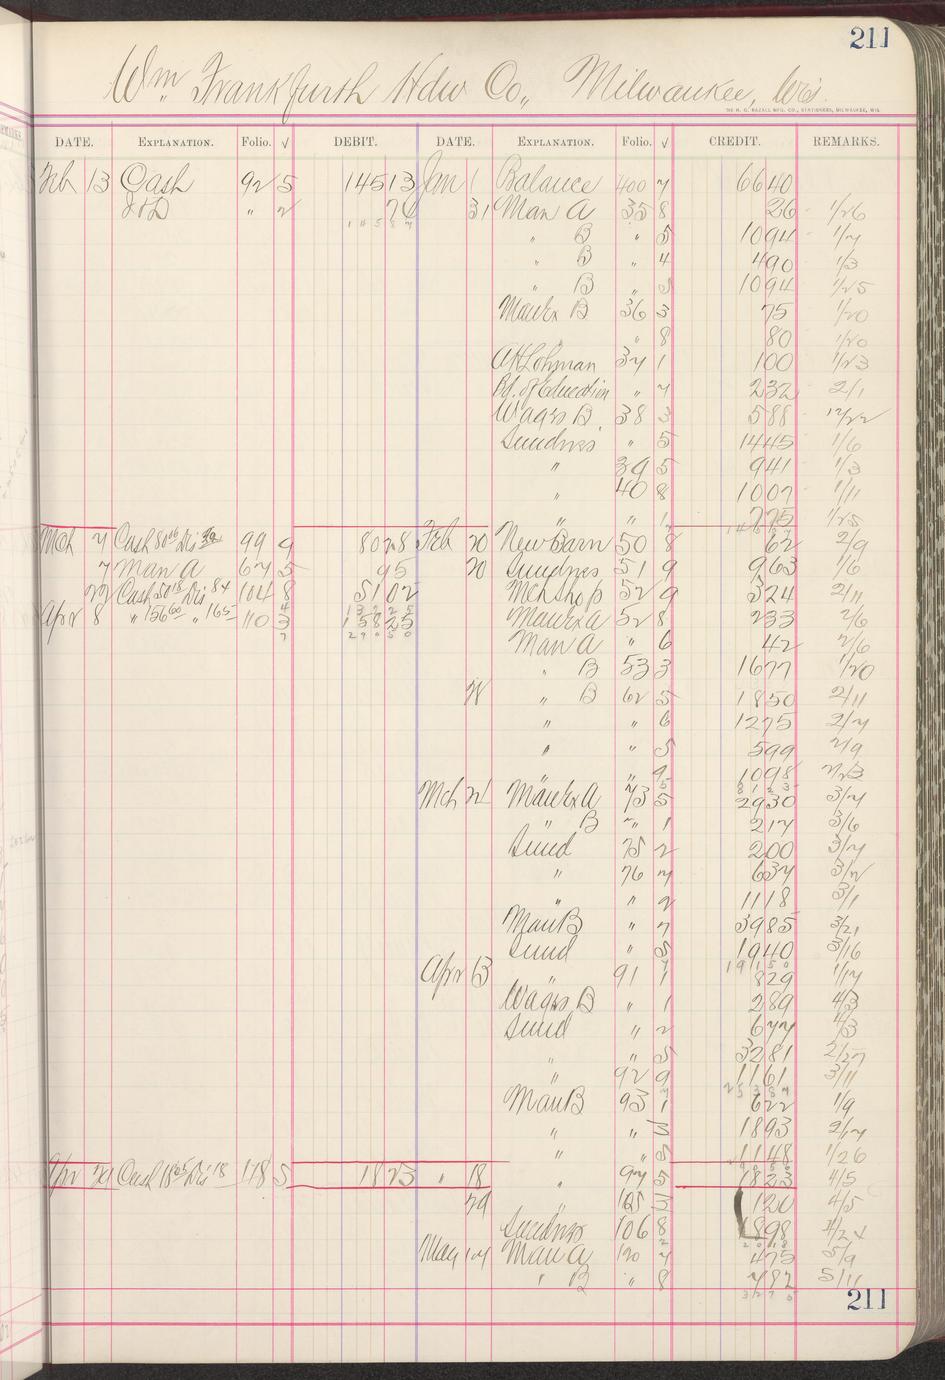 211
Wm. Frankfurth Hdw Co., Milwaukee, Wis.
DATE. EXPLANATION. Folio. √ DEBIT. DATE. EXPLANATION. Folio. √ CREDIT. REMARKS.
Feb 13 Cash 92 5 145 13 Jan 1 Balance 400 7 66 40
" 2 74 31 Man A 35 8 26 1/26
1 4 5 8 7 " B " 5 10 94 1/7
" B " 4 4 90 1/3
" B " 5 10 94 1/25
B 36 3 75 1/20
" 8 80 1/20
A H Lohman 37 1 1 00 1/23
Bd. of Education " 7 2 32 2/1
B 38 3 5 88 12/22
Sundries " 5 14 45 1/6
" 39 5 9 41 1/3
" 40 8 10 07 1/11
" " 1 7 75 1/25
Mch 7 Cash Dis 99 9 80 28 Feb 20 New Barn 50 8 62 2/9
7 Man A 67 5 95 20 Sundries 51 9 9 63 1/6
22 Cash Dis 84 104 8 51 02 Mch Shop 52 9 3 24 2/11
Apr 8 " 156 60 " 165 110 3 158 25 52 8 2 33 2/6
2 9 0 5 0 Man A " 6 42 2/6
" B 53 3 16 77 1/20
" B 62 5 18 50 2/11
" " 6 12 75 2/7
" " 5 5 99 2/9
" " 9 10 98 2/23
Mch 73 5 29 30 3/7
" B " 1 2 17 3/6
Sund 75 2 2 00 3/7
" 76 7 6 37 3/2
" " 2 11 18 3/1
Man B " 7 39 85 3/21
Sund " 5 19 40 3/16
1 9 1 5 0
Apr 13 " 91 1 8 29 1/17
B " 1 2 89 4/3
Sund " 2 6 77 4/3
" " 5 32 81 2/27
" 92 9 11 61 3/11
2 5 3 8 7
Man B 93 1 6 22 1/9
" " 3 18 93 2/17
" " 5 11 48 1/26
Apr Cash Dis 18 118 5 18 23 " 18 " 97 5 18 23 4/5
29 " 105 3 1 20 4/5
Sundries 106 8 18 98 4/24
May 14 Man A 120 7 4 75 5/9
" B " 8 7 82 5/11
3 2 7 5
211